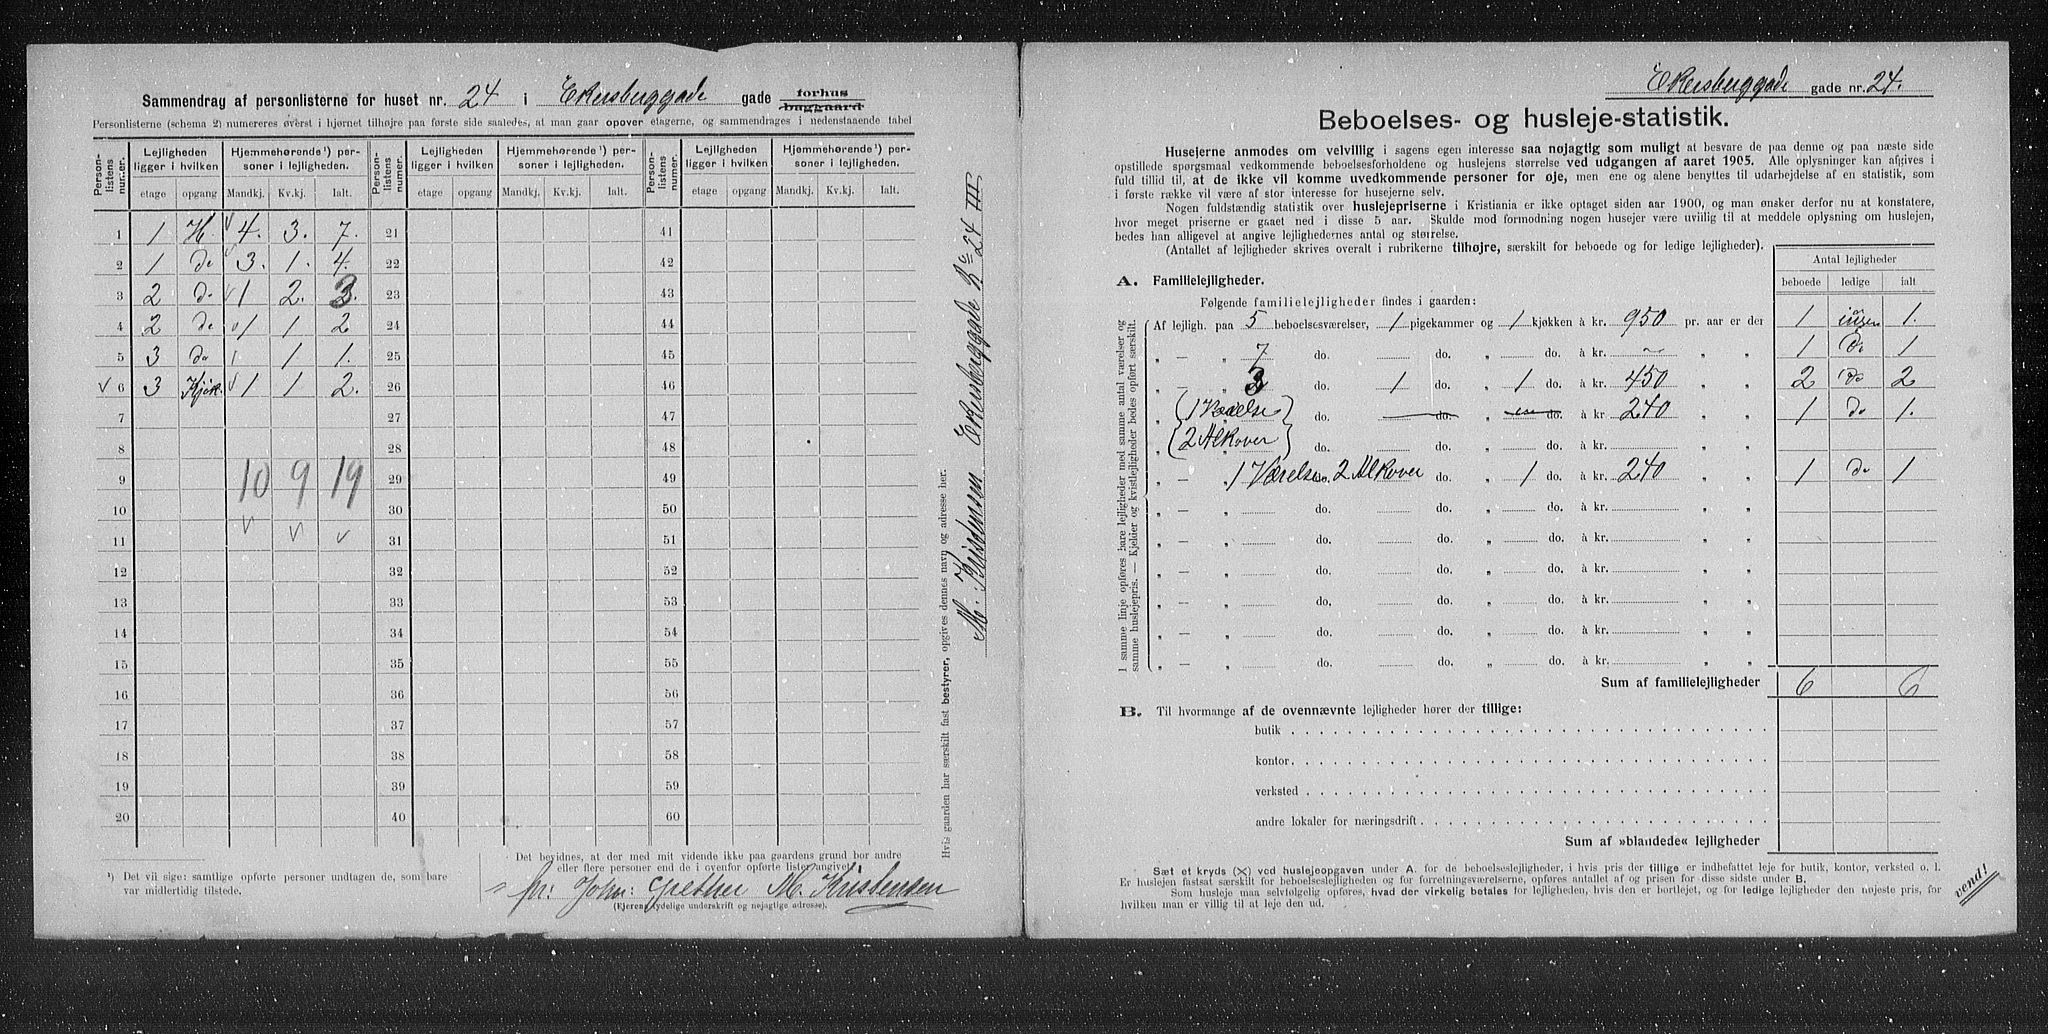 Sammendrag af personlisterne for huset nr. 24 i Ekersberggade gade forhus
buggaard
Personlisterne (schema 2) numereres øverst i hjørnet tilhøjre paa første side saaledes, at man gaar opover etagerne, og sammendrages i nedenstaaende tabel
Person-listens numer. Lejligheden ligger i hvilken Hjemmehørende ¹) personer i lejligheden. Person-listens numer. Lejligheden ligger i hvilken Hjemmehørende ¹) personer i lejligheden. Person-listens numer. Lejligheden ligger i hvilken Hjemmehørende ¹) personer i lejligheden.
etage opgang Mandkj. Kv.kj. Ialt. etage opgang Mandkj. Kv.kj. Ialt. etage opgang Mandkj. Kv.kj. Ialt.
1 1 H. √ 4. 3. 7. 21 41
2 1 do √ 3. 1. 4. 22 42
3 2 do √ 1 2. 3. 23 43
4 2 do √ 1 1 2 24 44
5 3 do 1 1. 25 45
√ 6 3 Kjøk. √ 1 1 2. 26 46
7 27 47
8 28 48
9 10 9 19 29 49
10 √ √ √ 30 50
11 31 51
12 32 52
13 33 53
14 34 54
15 35 55
16 36 56
17 37 57
18 38 58
19 39 59
20 40 60
¹) Det vil sige: samtlige opførte personer undtagen de, som bare
var midlertidig tilstede.
Det bevidnes, at der med mit vidende ikke paa gaardens grund bor andre
eller flere personer end de i ovenfor opførte lister angivet
pr. John: Grether M. Kristensen
(Ejerens tydelige underskrift og nøjagtige adresse).
Hvis gaarden har særskilt fast bestyrer, opgives dennes navn og adresse her.
M. Kristensen Ekersberggade No 24 III
Ekersberggade gade nr. 24.
Beboelses- og husleje-statistik.
Husejerne anmodes om velvillig i sagens egen interesse saa nøjagtig som muligt at besvare de paa denne og paa næste side
opstillede spørgsmaal vedkommende beboelsesforholdene og huslejens størrelse ved udgangen af aaret 1905. Alle oplysninger kan afgives i
fuld tillid til, at de ikke vil komme uvedkommende personer for øje, men ene og alene benyttes til udarbejdelse af en statistik, som
i første række vil være af stor interesse for husejerne selv.
Nogen fuldstændig statistik over huslejepriserne i Kristiania er ikke optaget siden aar 1900, og man ønsker derfor nu at konstatere,
hvor meget priserne er gaaet ned i disse 5 aar. Skulde mod formodning nogen husejer være uvillig til at meddele oplysning om huslejen,
bedes han alligevel at angive lejlighedernes antal og størrelse.
(Antallet af lejligheder skrives overalt i rubrikerne tilhøjre, særskilt for beboede og for ledige lejligheder).
Antal lejligheder
beboede ledige ialt
A. Familielejligheder.
Følgende familielejligheder findes i gaarden:
I samme linje opføres bare lejligheder med samme antal værelser og
samme huslejepris. — Kjelder og kvistlejligheder bedes opført særskilt.
Af lejligh. paa 5 beboelsesværelser, 1 pigekammer og 1 kjøkken à kr. 950 pr. aar er der 1 ingen 1.
„ — „ 7 do. do. „ do. à kr. — „ „ 1 do 1
„ — „ 3 do. 1 do. „ 1 do. à kr. 450 „ „ 2 do 2
„ (1 Værelse do. do. „ do. à kr. 240 „ „ 1 do 1.
„ (2 Alkover do. do. „ do. à kr. „ „
„ — „ 1 Værelse do. 2 Alkover do. „ 1 do. à kr. 240 „ „ 1 do 1
„ — „ do. do. „ do. à kr. „ „
„ — „ do. do. „ do. à kr. „ „
„ — „ do. do. „ do. à kr. „ „
„ — „ do. do. „ do. à kr. „ „
„ — „ do. do. „ do. à kr. „ „
„ — „ do. do. „ do. à kr. „ „
Sum af familielejligheder 6 6
B. Til hvormange af de ovennævnte lejligheder hører der tillige:
butik
kontor
verksted
andre lokaler for næringsdrift
Sum af »blandede« lejligheder
Sæt et kryds (×) ved huslejeopgaven under A. for de beboelseslejligheder, i hvis pris der tillige er indbefattet leje for butik, kontor, verksted o. l.
Er huslejen fastsat særskilt for beboelseslejligheden og for forretningsværelserne, opføres antallet af og prisen for disse sidste under B.
Som husleje maa selvfølgelig opføres, hvad der virkelig betales for lejligheden, hvis den er bortlejet, og for ledige lejligheder den nøjeste pris, for
hvilken man er villig til at leje den ud.
vend!